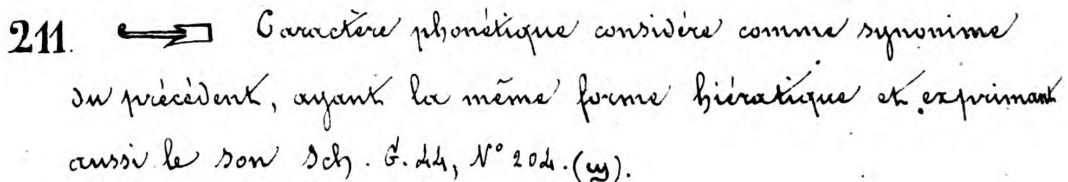 211. Caractère phonétique considéré comme synonime
du précédent, ayant la même forme hiératique et exprimant
aussi le son Sch. G. 44, N° 204. (ϣ).